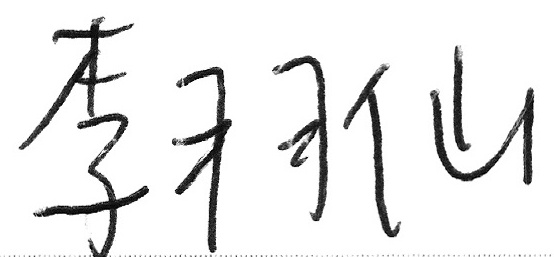 李羽仙